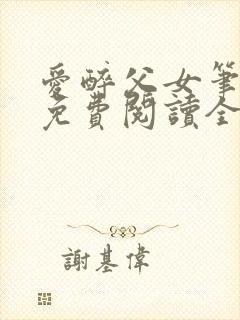 愛醉父女筆
免費閱讀全
謝基偉